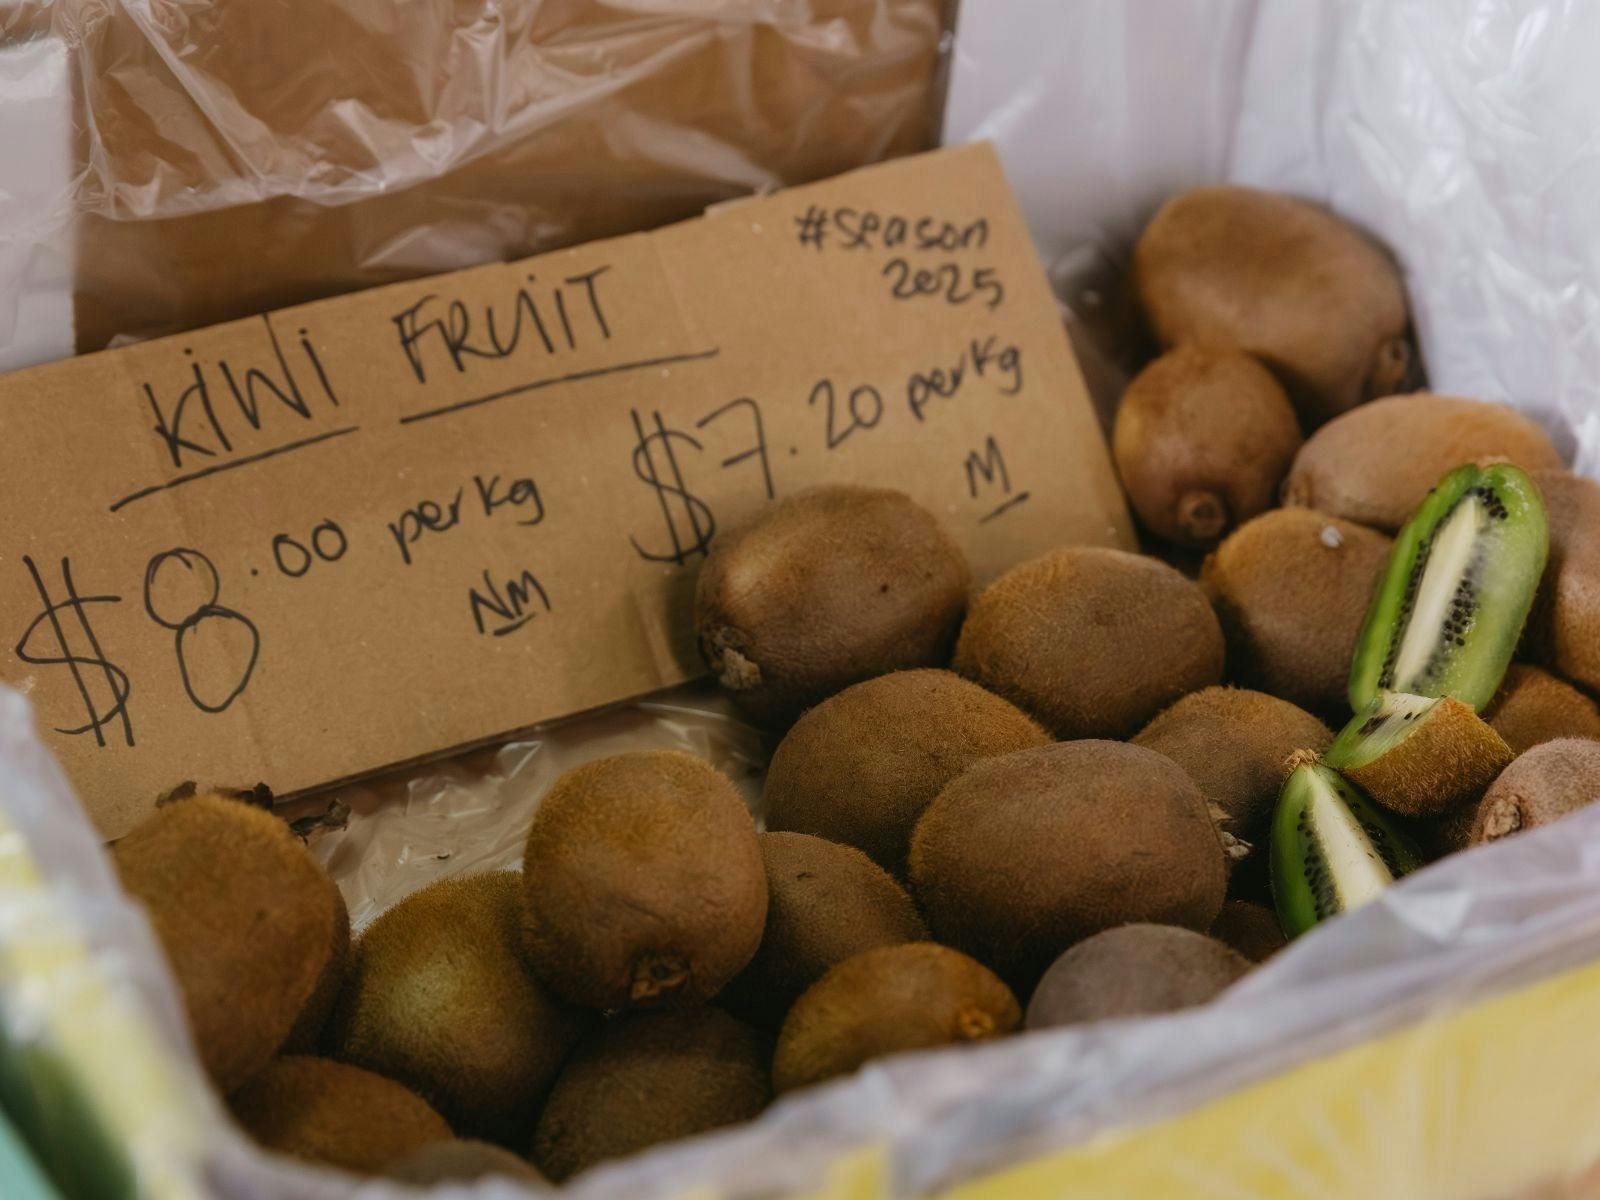 #season
2025
KiWi FRUiT
$8.00 per Kg
NM
$7.20 per Kg
M